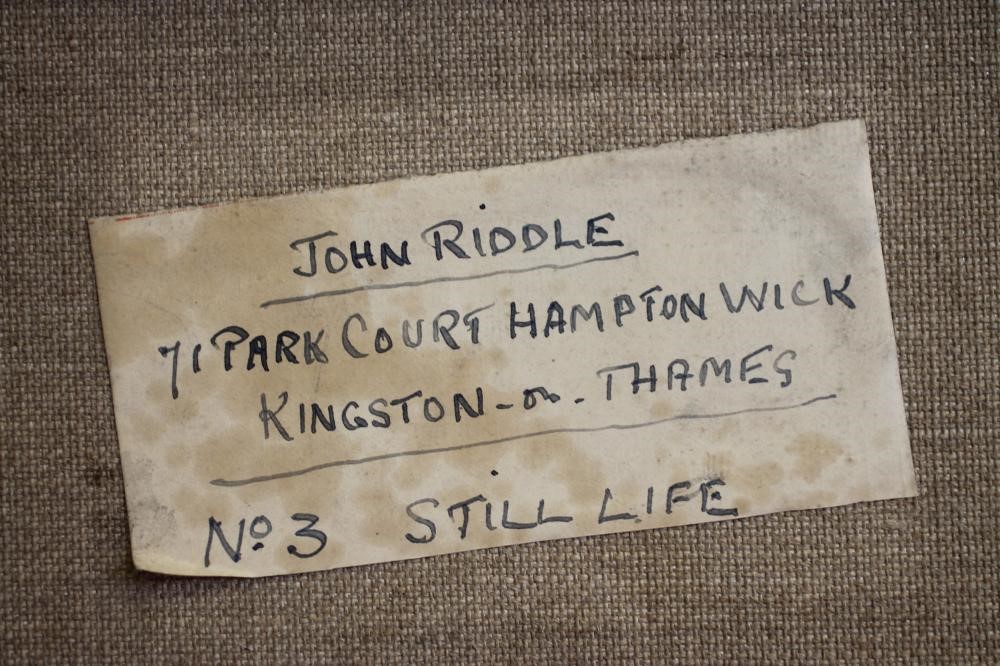 JOHN RIDDLE
71 PARK COURT HAMPTON WICK
KINGSTON-on-THAMES
No 3 STILL LIFE